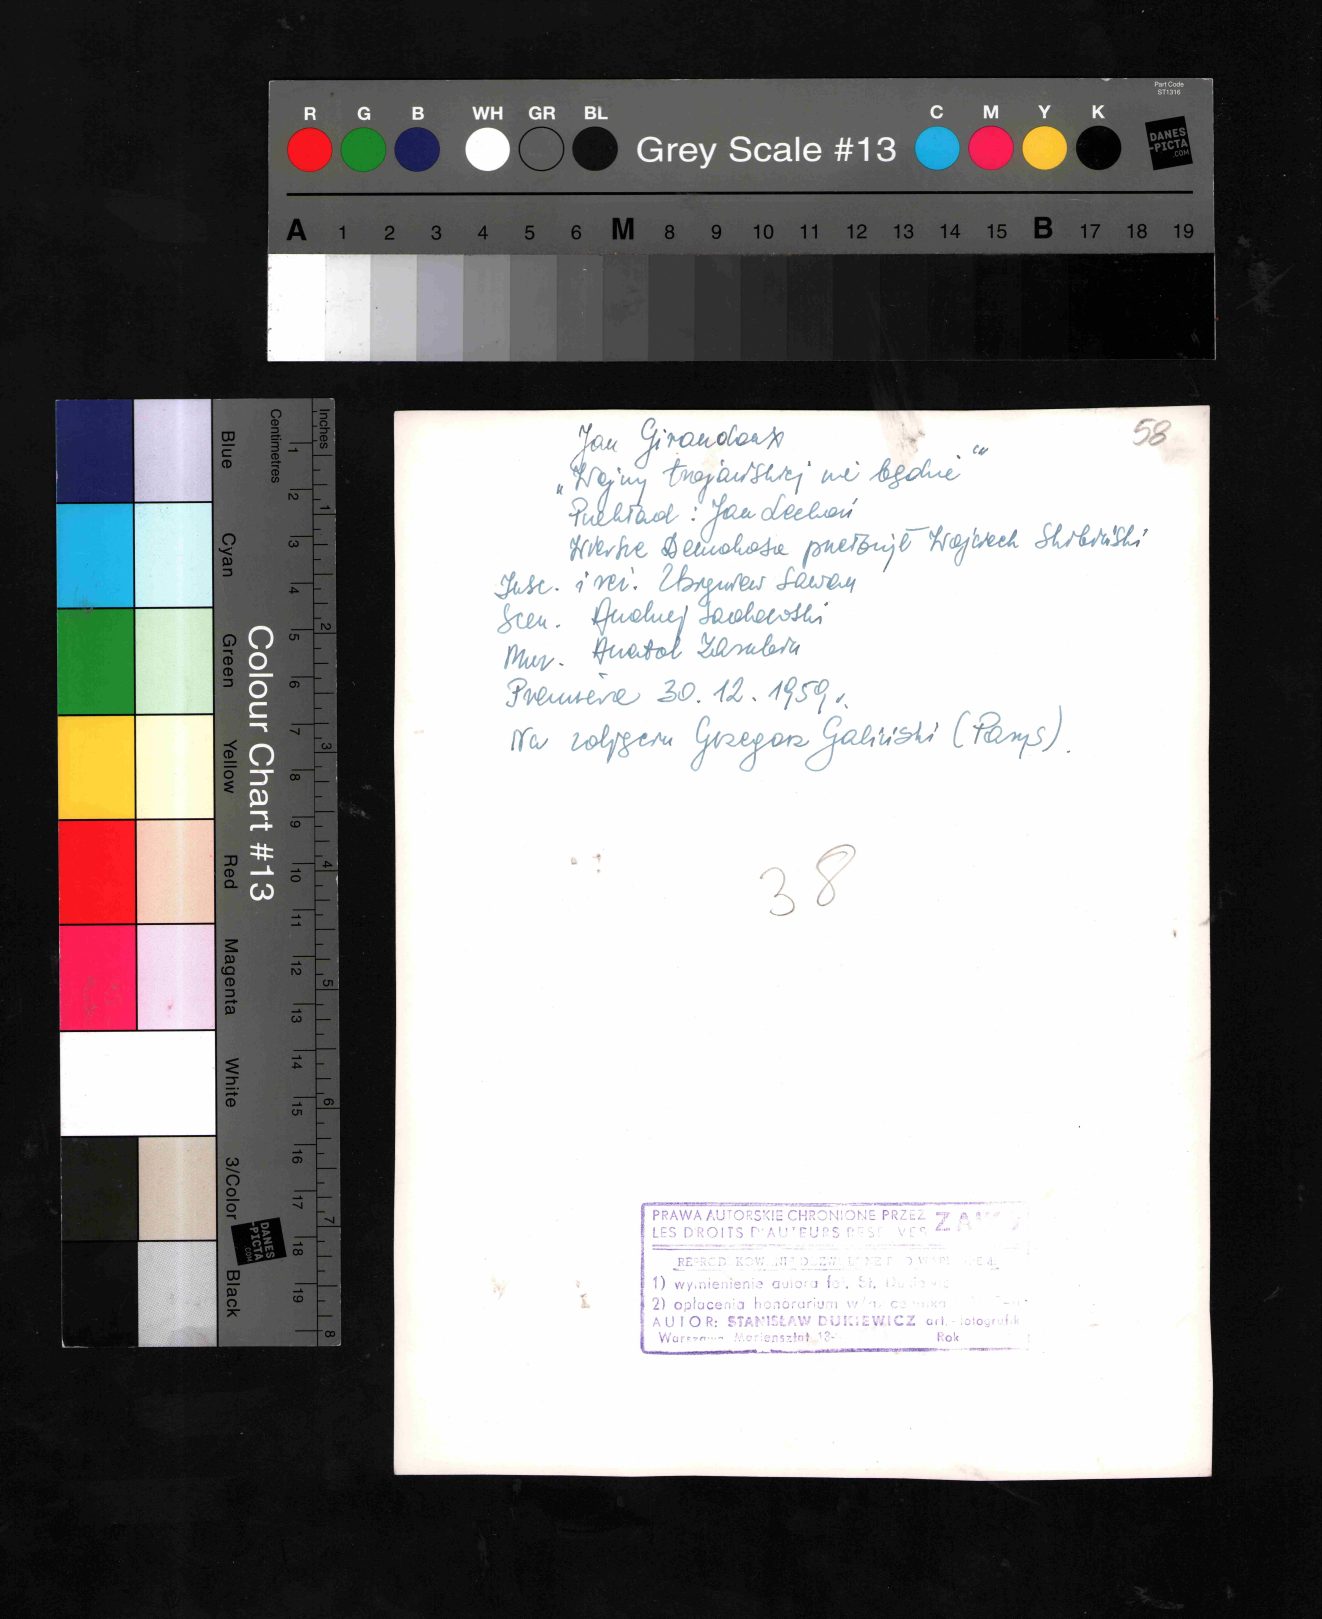 Part Code
ST1316
R G B WH GR BL Grey Scale #13 C M Y K
DANES
-PICTA
.COM
A 1 2 3 4 5 6 M 8 9 10 11 12 13 14 15 B 17 18 19
Colour Chart #13
Blue
Cyan
Green
Yellow
Red
Magenta
White
3/Color
Black
Centimetres
1 2 3 4 5 6 7 8 9 10 11 12 13 14 15 16 17 18 19
Inches
1 2 3 4 5 6 7 8
DANES
-PICTA
.COM
58
Jan Giraudoux
„Wojny trojańskiej nie będzie”
Przekład: Jan Lechoń
Wiersze Demokosa przełożył Wojciech Skibiński
Insc. i reż. Zbigniew Sawan
Scen. Andrzej Sadowski
Muz. Anatol Zarubin
Premiera 30.12.1959 r.
Na zdjęciu Grzegorz Galiński (Parys).
38
PRAWA AUTORSKIE CHRONIONE PRZEZ
LES DROITS D'AUTEURS
1) wymienienie autora fot. St.
2) opłacenia honorarium
AUTOR: STANISŁAW DUKIEWICZ art.-fotografik
Mariensztat Rok